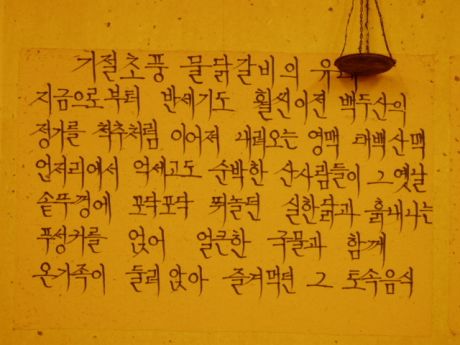 기절초풍 물닭갈비의
지금으로부터 반세기도 훨씬이전 백두산의
정기를 척추처럼 이어져 내려오는 영맥 태백산맥
언저리에서 억세고도 순박한 산사람들이 그 옛날
솥뚜껑에 꼬닥꼬닥 뛰놀던 실한닭과 흙내나는
푸성귀를 얹어 얼큰한 국물과 함께
온가족이 둘러 앉아 즐겨먹던 그 토속음식